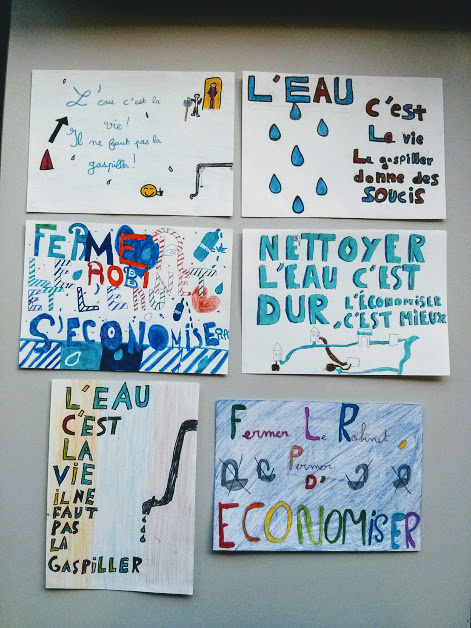 L'eau c'est la
vie!
Il ne faut pas la
gaspiller!
L'EAU
C'est
La vie
La gaspiller
donne des
SOUCIS
FERME
ROBI
ET L'EAU
S'ECONOMISERA
NETTOYER
L'EAU C'EST
DUR, L'ÉCONOMISER
C'EST MIEUX
L'EAU
C'EST
LA
VIE
iL NE
FAUT
PAS
LA
GASPiLLER
Fermer Le Robinet
Permer
D'
ECONOMiSER